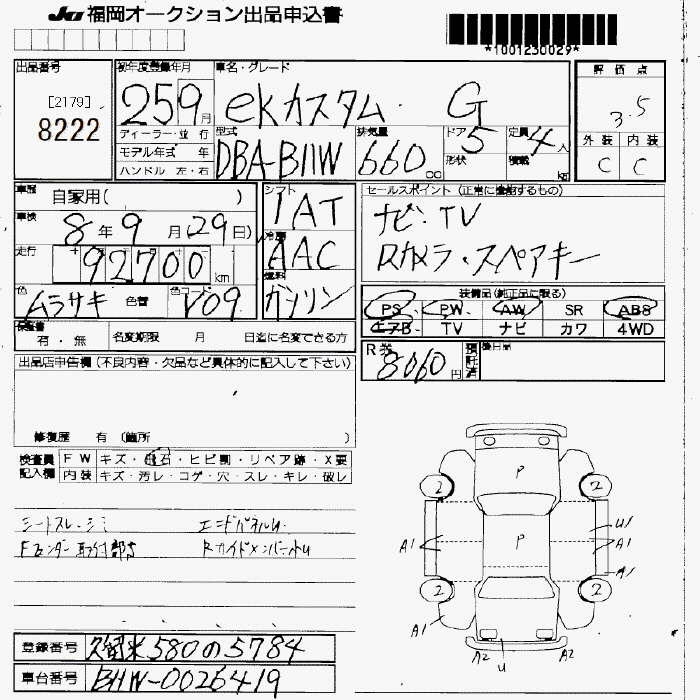 JU 福岡オークション出品申込書
*1001230029*
出品番号
[2179]
8222
初年度登録年月
25 9月
車名・グレード
eKカスタム G
評価点
3.5
外装 内装
C C
ディーラー・並行
モデル年式 年
ハンドル 左・右
型式
DBA-B11W
排気量
660cc
ドア 5
形状
定員 4人
積載 kg
車歴 自家用( )
車検 8年9月(29日)
走行 92700km
色 ムラサキ 色替 色コード V09
シフト
IAT
冷房
AAC
燃料
ガソリン
セールスポイント (正常に機能するもの)
ナビ・TV
Rカメラ・スペアキー
装備品(純正品に限る)
PS PW AW SR ABS
エアB TV ナビ カワ 4WD
保証書
有・無
名変期限 月 日迄に名変できる方
R券
8060円
預託済
後日品
出品店申告欄(不良内容・欠品など具体的に記入して下さい)
修復歴 有(箇所 )
検査員記入欄
FW キズ・飛石・ヒビ割・リペア跡・X要
内装 キズ・汚レ・コゲ・穴・スレ・キレ・破レ
シートスレ・シミ エンドパネルU
Fフェンダー取付部キ RサイドメンバーホU
P
2 2
U1
A1 P A1
A1
2 2
A1
A2 U A2
登録番号 久留米580の5784
車台番号 B11W-0026419